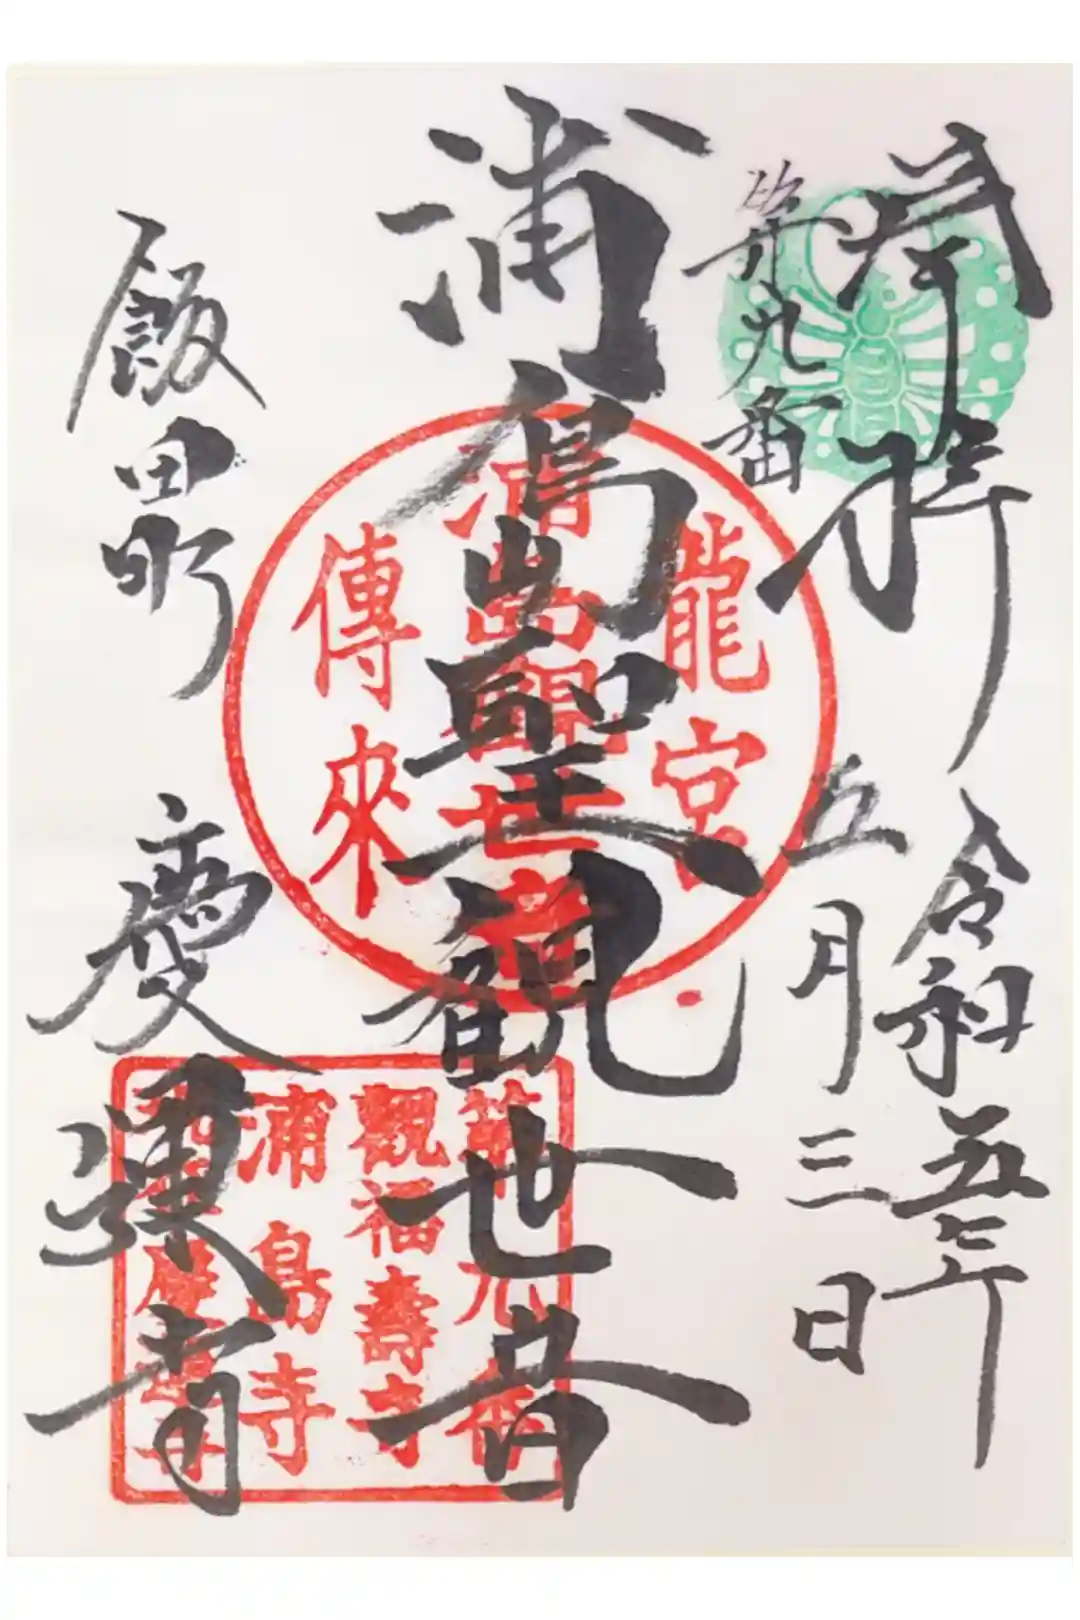 奉拝
令和五年
第九番
五月三日
浦島聖観世音
飯田町 慶運寺
龍宮
浦島觀世音
傳來
第九番
觀福壽寺
浦島寺
慶運寺